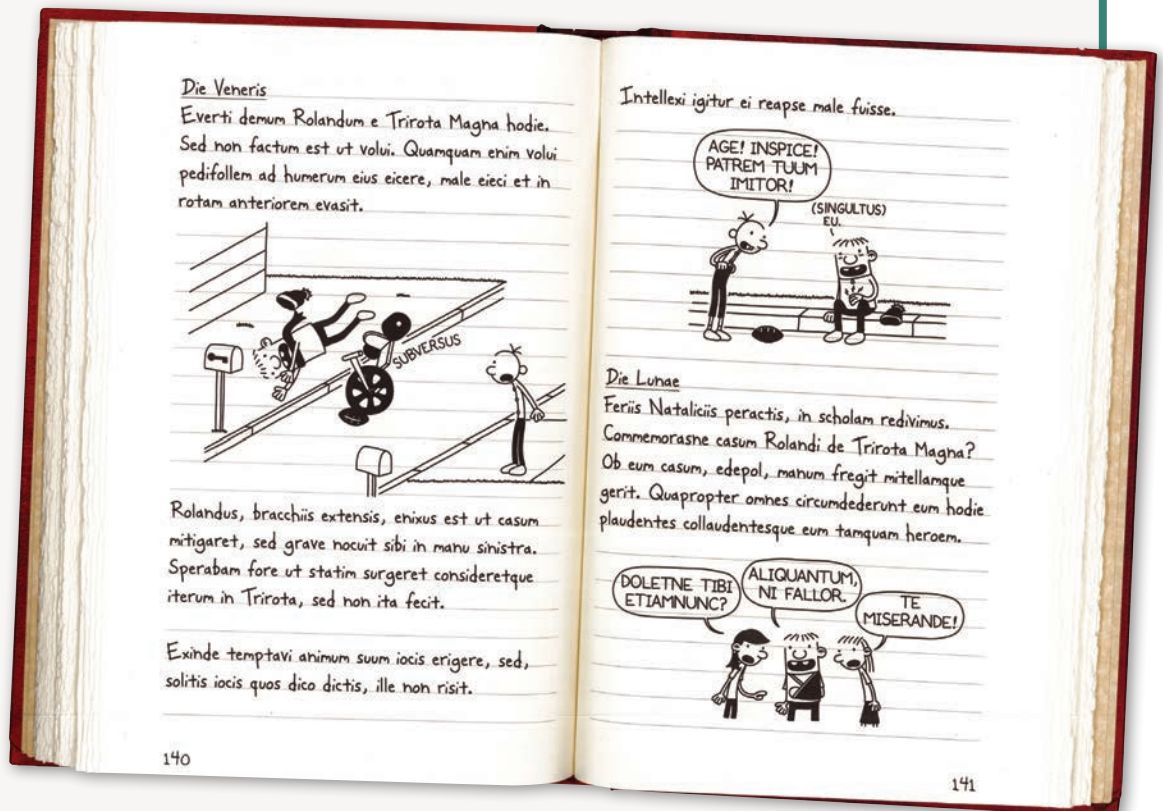 Die Veneris
Everti demum Rolandum e Trirota Magna hodie.
Sed non factum est ut volui. Quamquam enim volui
pedifollem ad humerum eius eicere, male eieci et in
rotam anteriorem evasit.
SUBVERSUS
Rolandus, bracchiis extensis, enixus est ut casum
mitigaret, sed grave nocuit sibi in manu sinistra.
Sperabam fore ut statim surgeret consideretque
iterum in Trirota, sed non ita fecit.
Exinde temptavi animum suum iocis erigere, sed,
solitis iocis quos dico dictis, ille non risit.
140
Intellexi igitur ei reapse male fuisse.
AGE! INSPICE!
PATREM TUUM
IMITOR!
(SINGULTUS)
EU.
Die Lunae
Feriis Nataliciis peractis, in scholam redivimus.
Commemorasne casum Rolandi de Trirota Magna?
Ob eum casum, edepol, manum fregit mitellamque
gerit. Quapropter omnes circumdederunt eum hodie
plaudentes collaudentesque eum tamquam heroem.
DOLETNE TIBI
ETIAMNUNC?
ALIQUANTUM,
NI FALLOR.
TE
MISERANDE!
141